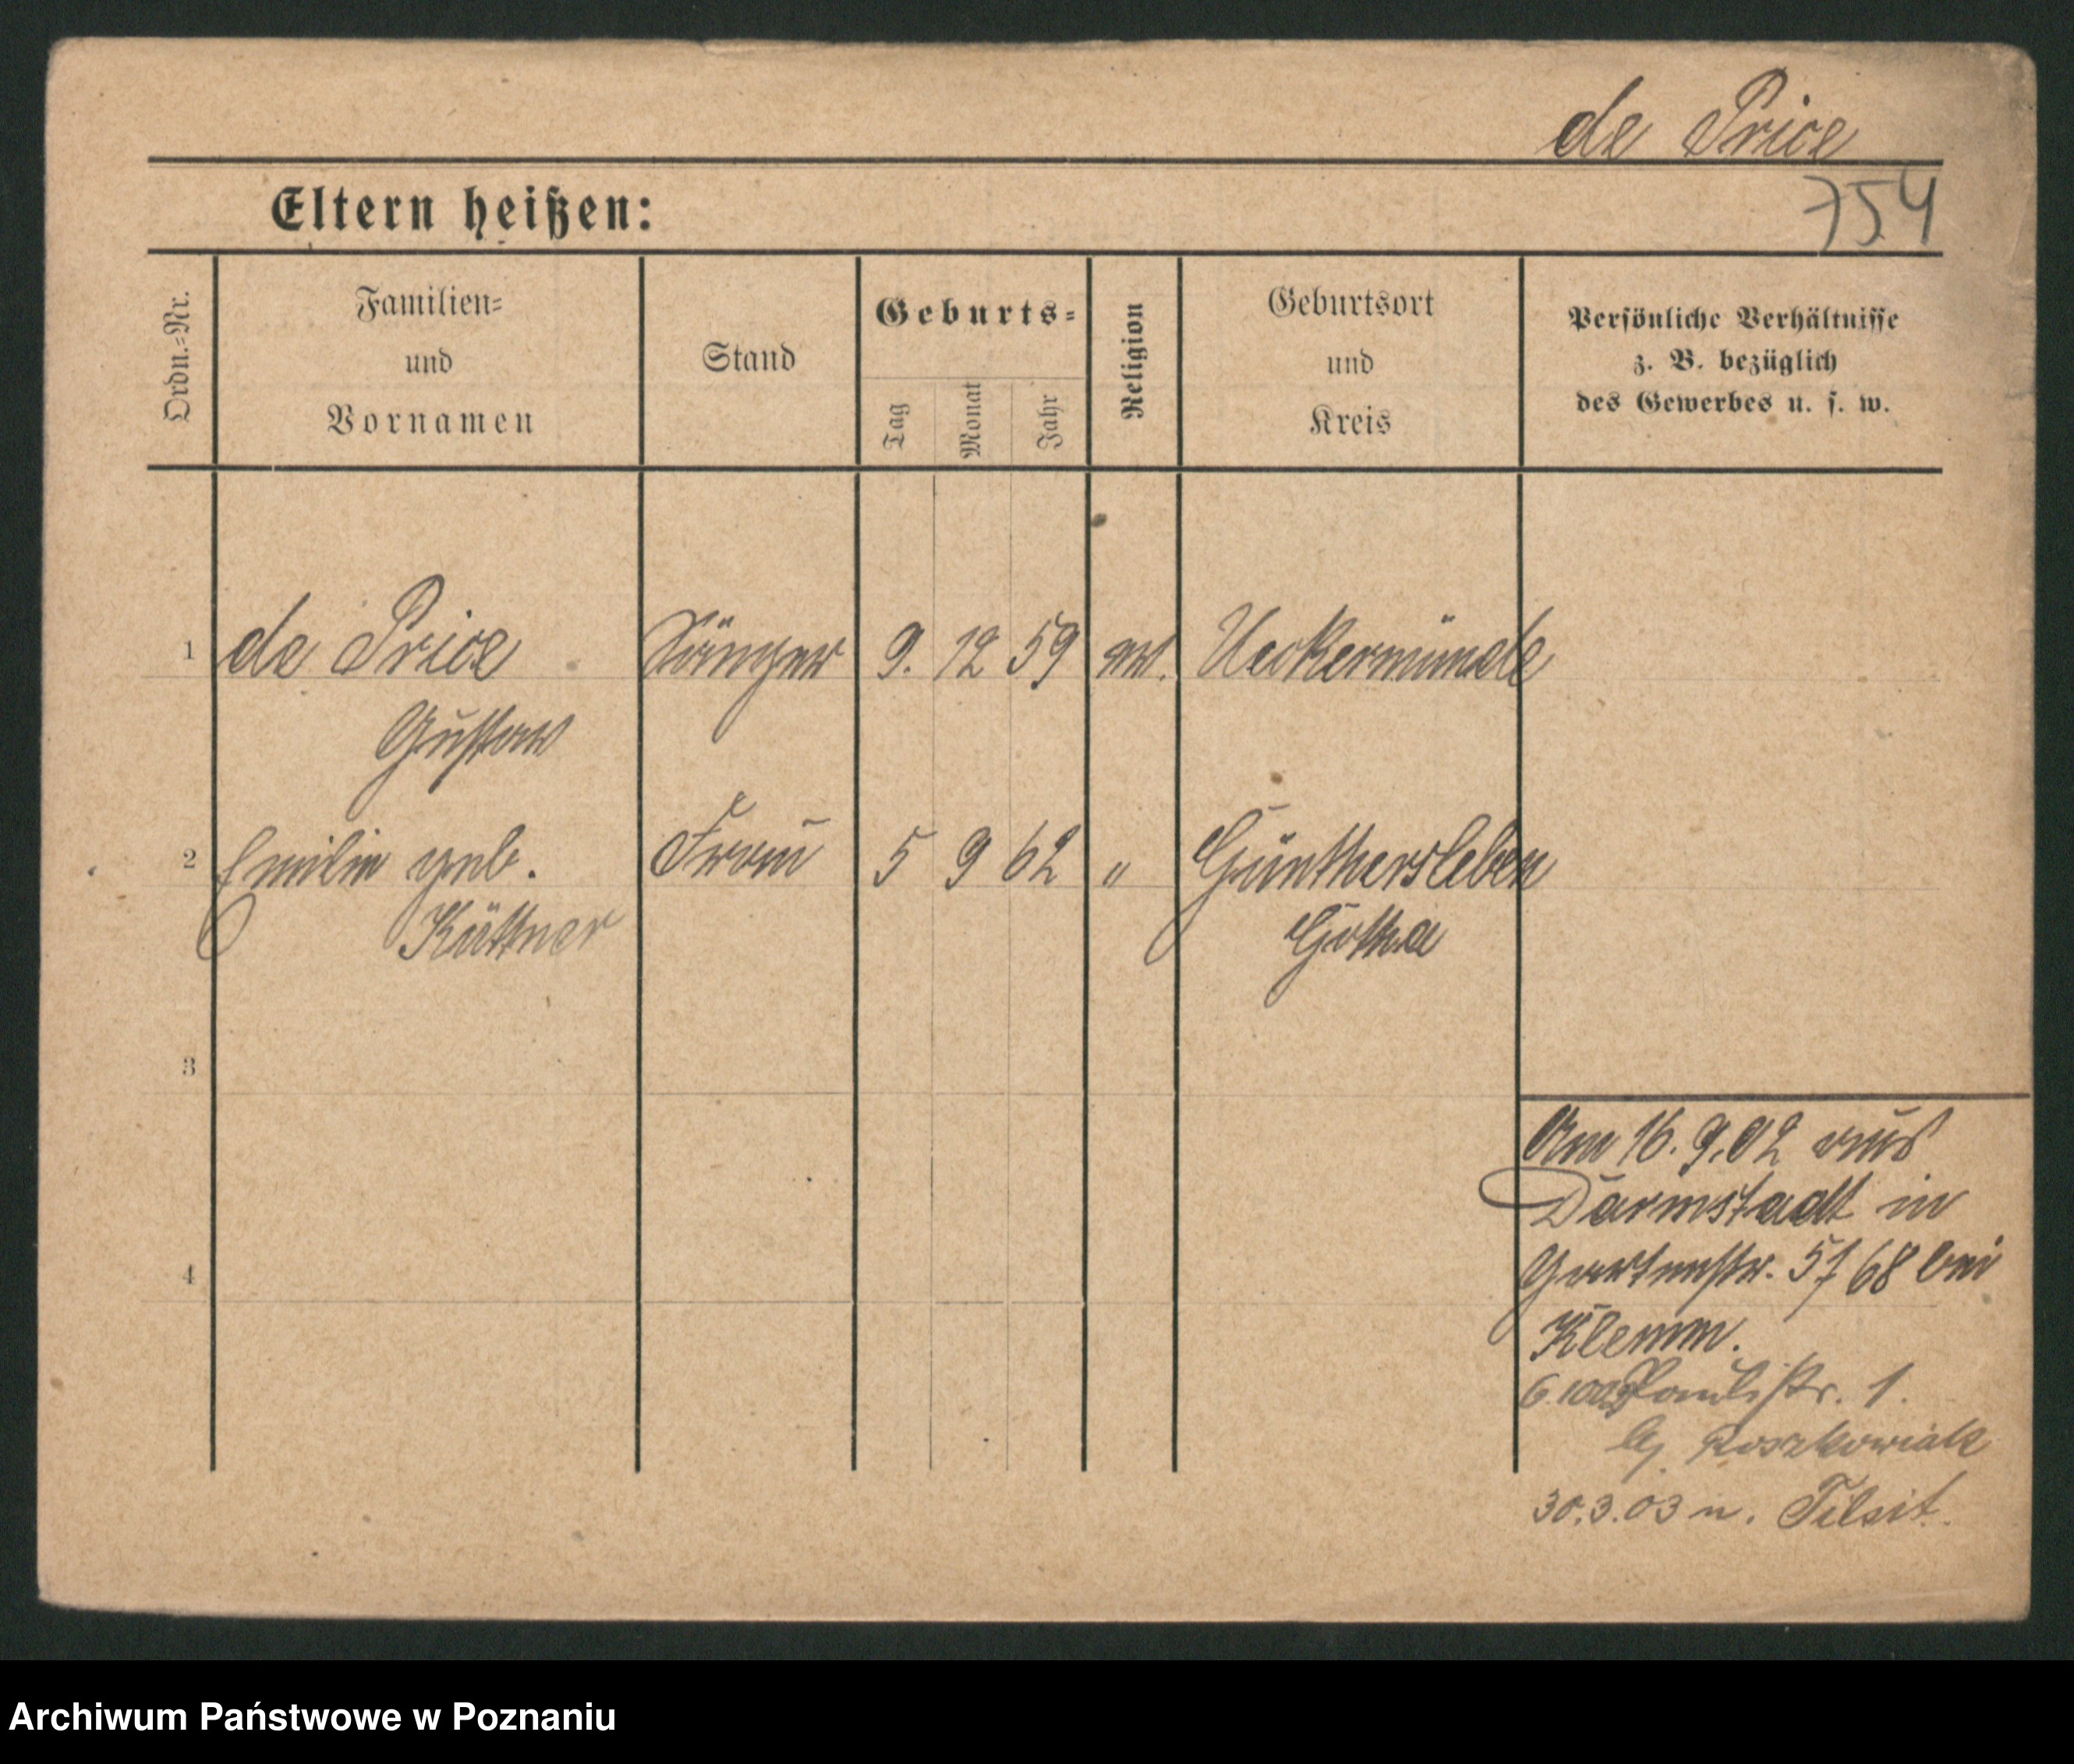 de Price
Eltern heißen:
754
Ordn.-Nr.
Familien-
und
Vornamen
Stand
Geburts-
Tag
Monat
Jahr
Religion
Geburtsort
und
Kreis
Persönliche Verhältnisse
z. B. bezüglich
des Gewerbes u. s. w.
1 de Price Sänger 9. 12 59 ev. Ueckermünde
Gustav
2 Emilie geb. Frau 5 9 62 " Günthersleben
Küttner Gotha
3
4
Am 16.9.02 aus
Darmstadt in
Gartenstr. 57 68 bei
Klemm.
6. Paulistr. 1.
bj Roszkowiak
30.3.03 n. Tilsit.
Archiwum Państwowe w Poznaniu